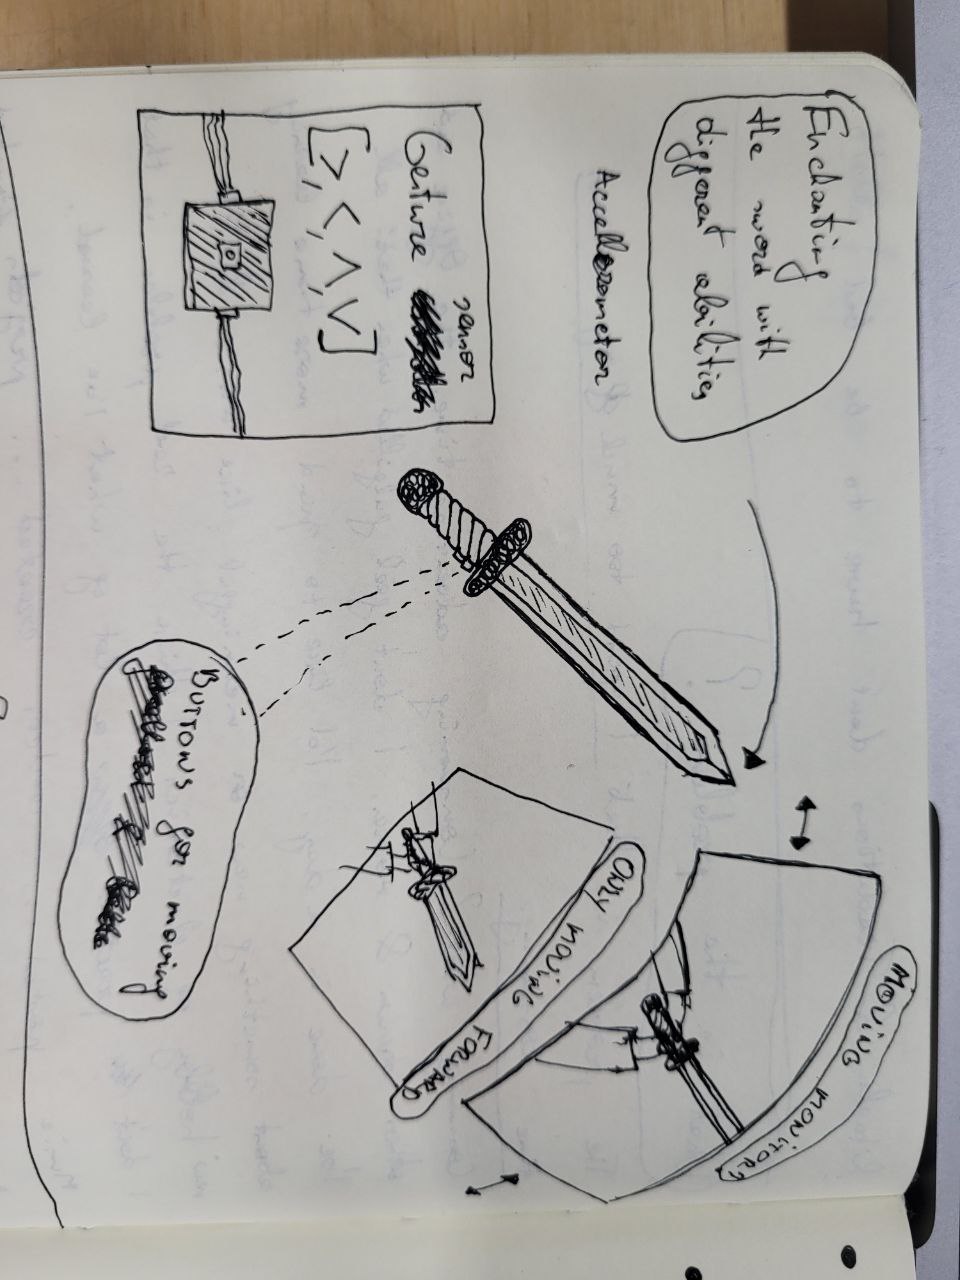 Enchanting
the sword with
different abilities
Accelerometor
Gesture sensor
[>, <, ∧, V]
BUTTONS for moving
ONLY MOVING FORWARD
MOVING MONITOR?